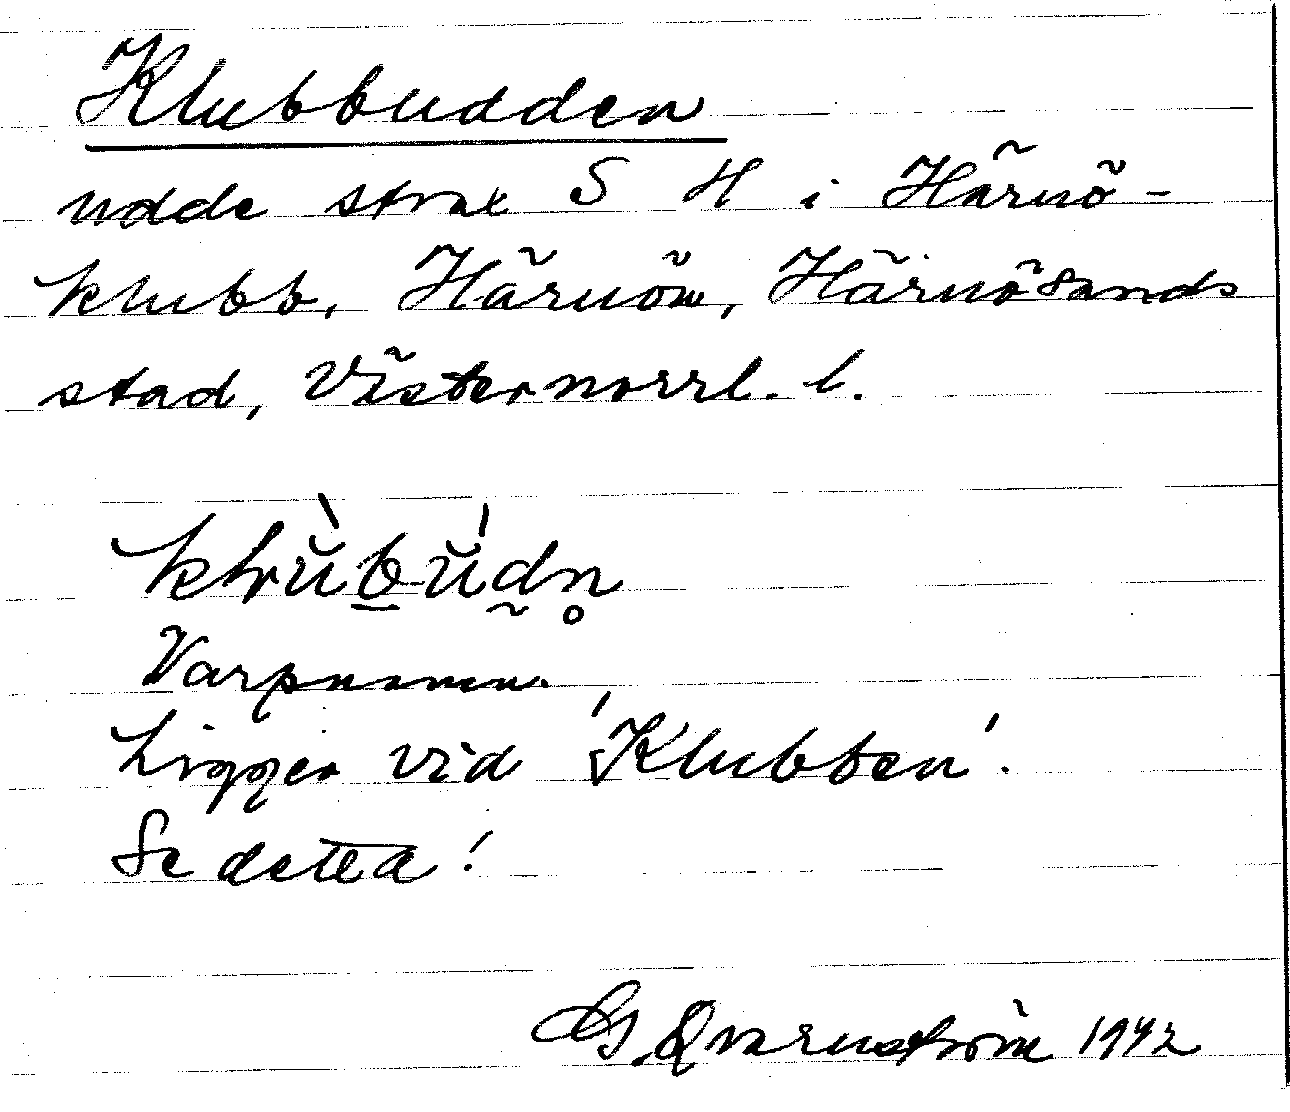 Klubbudden
udde strax S H i Härnö-
klubb, Härnön, Härnösands
stad, Västernorrl. l.
Varpnamn.
Ligger vid 'Klubben'.
Se detta!
G. Qvarnström 1942